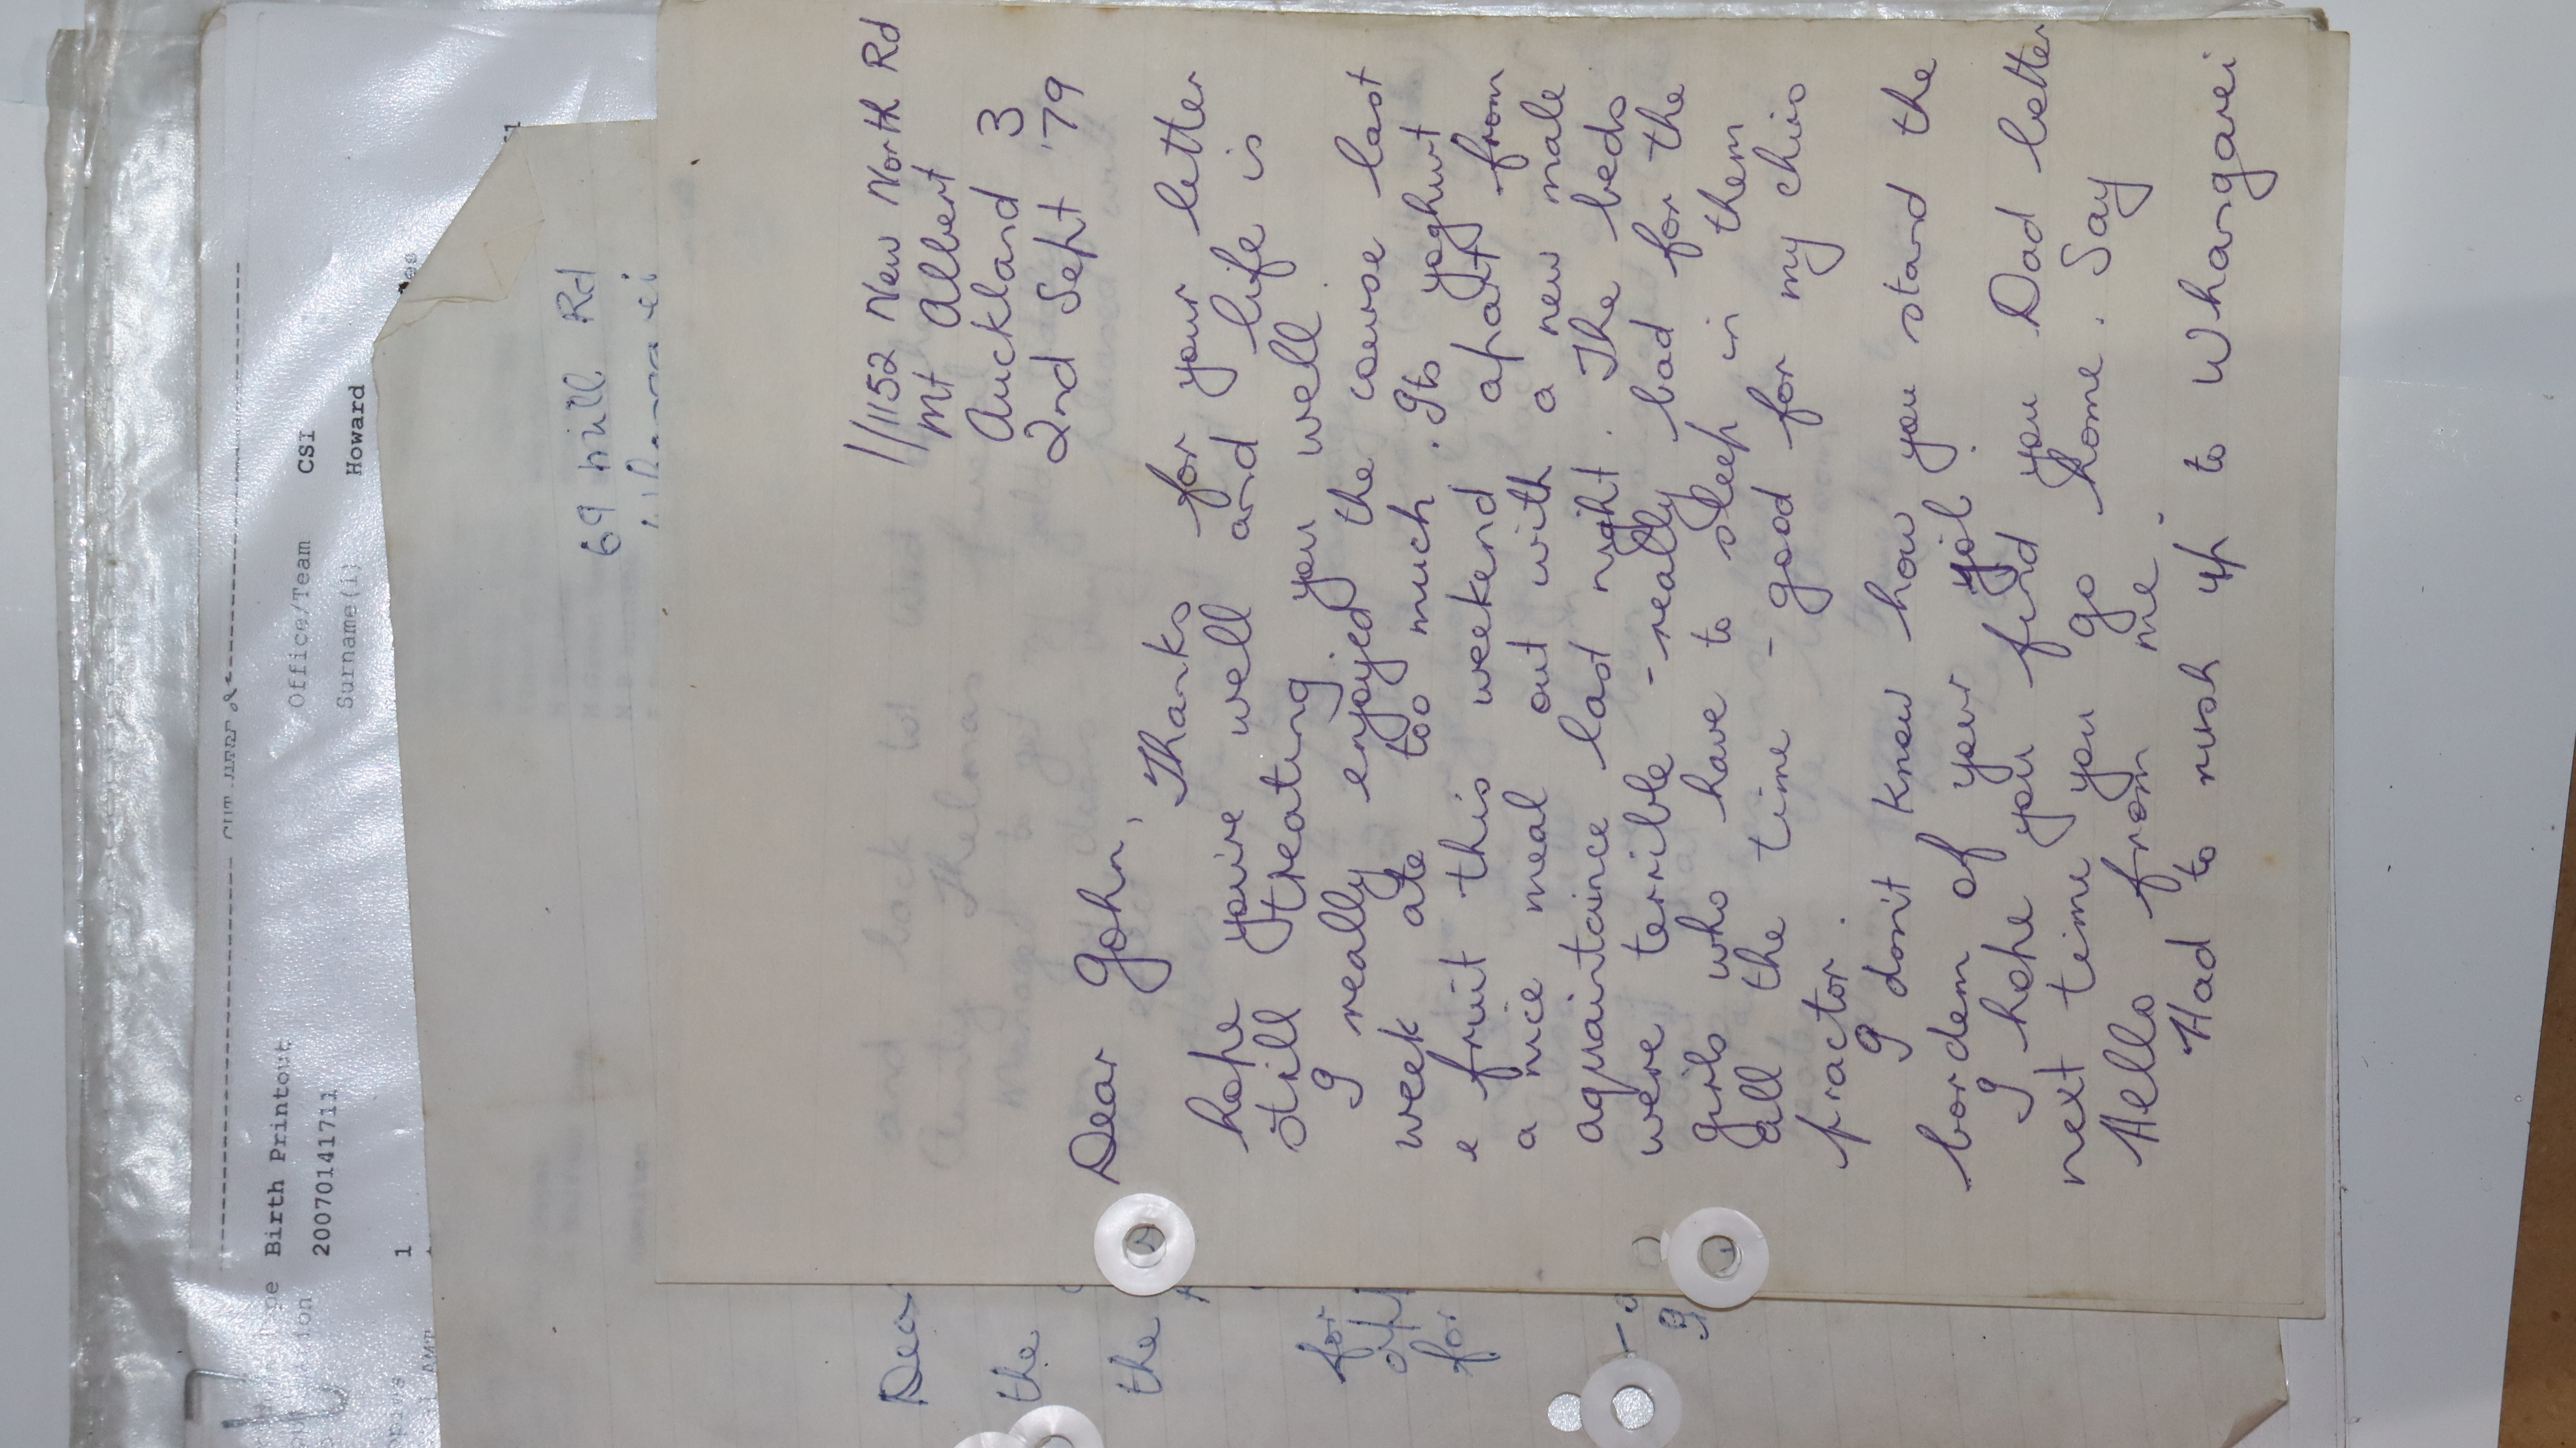 Office/Team CSI
Surname(i) Howard
Birth Printout
20070141711
1
69 Mill Rd
11/1152 New North Rd
Mt Albert
Auckland 3
2nd Sept '79
Dear John,
Thanks for your letter
hope you're well and life is
still treating you well.
I really enjoyed the course last
week ate too much. Its yoghurt
e fruit this weekend apart from
a nice meal out with a new male
aquaintaince last night. The beds
were terrible - really bad for the
girls who have to sleep in them
all the time - good for my chiro
practor.
I don't know how you stand the
bordem of your job.
I hope you find you Dad better
next time you go home. Say
Hello from me.
Had to rush up to Whangarei
Dear
the
the
for
for